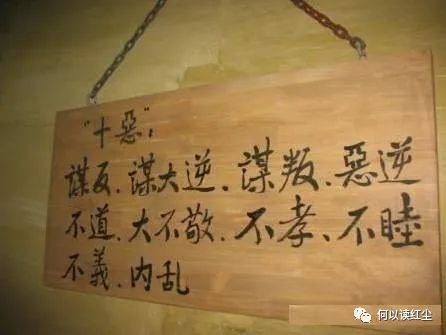 "十惡"：
謀反、謀大逆、謀叛、惡逆
不道、大不敬、不孝、不睦
不義、内乱
何以读红尘